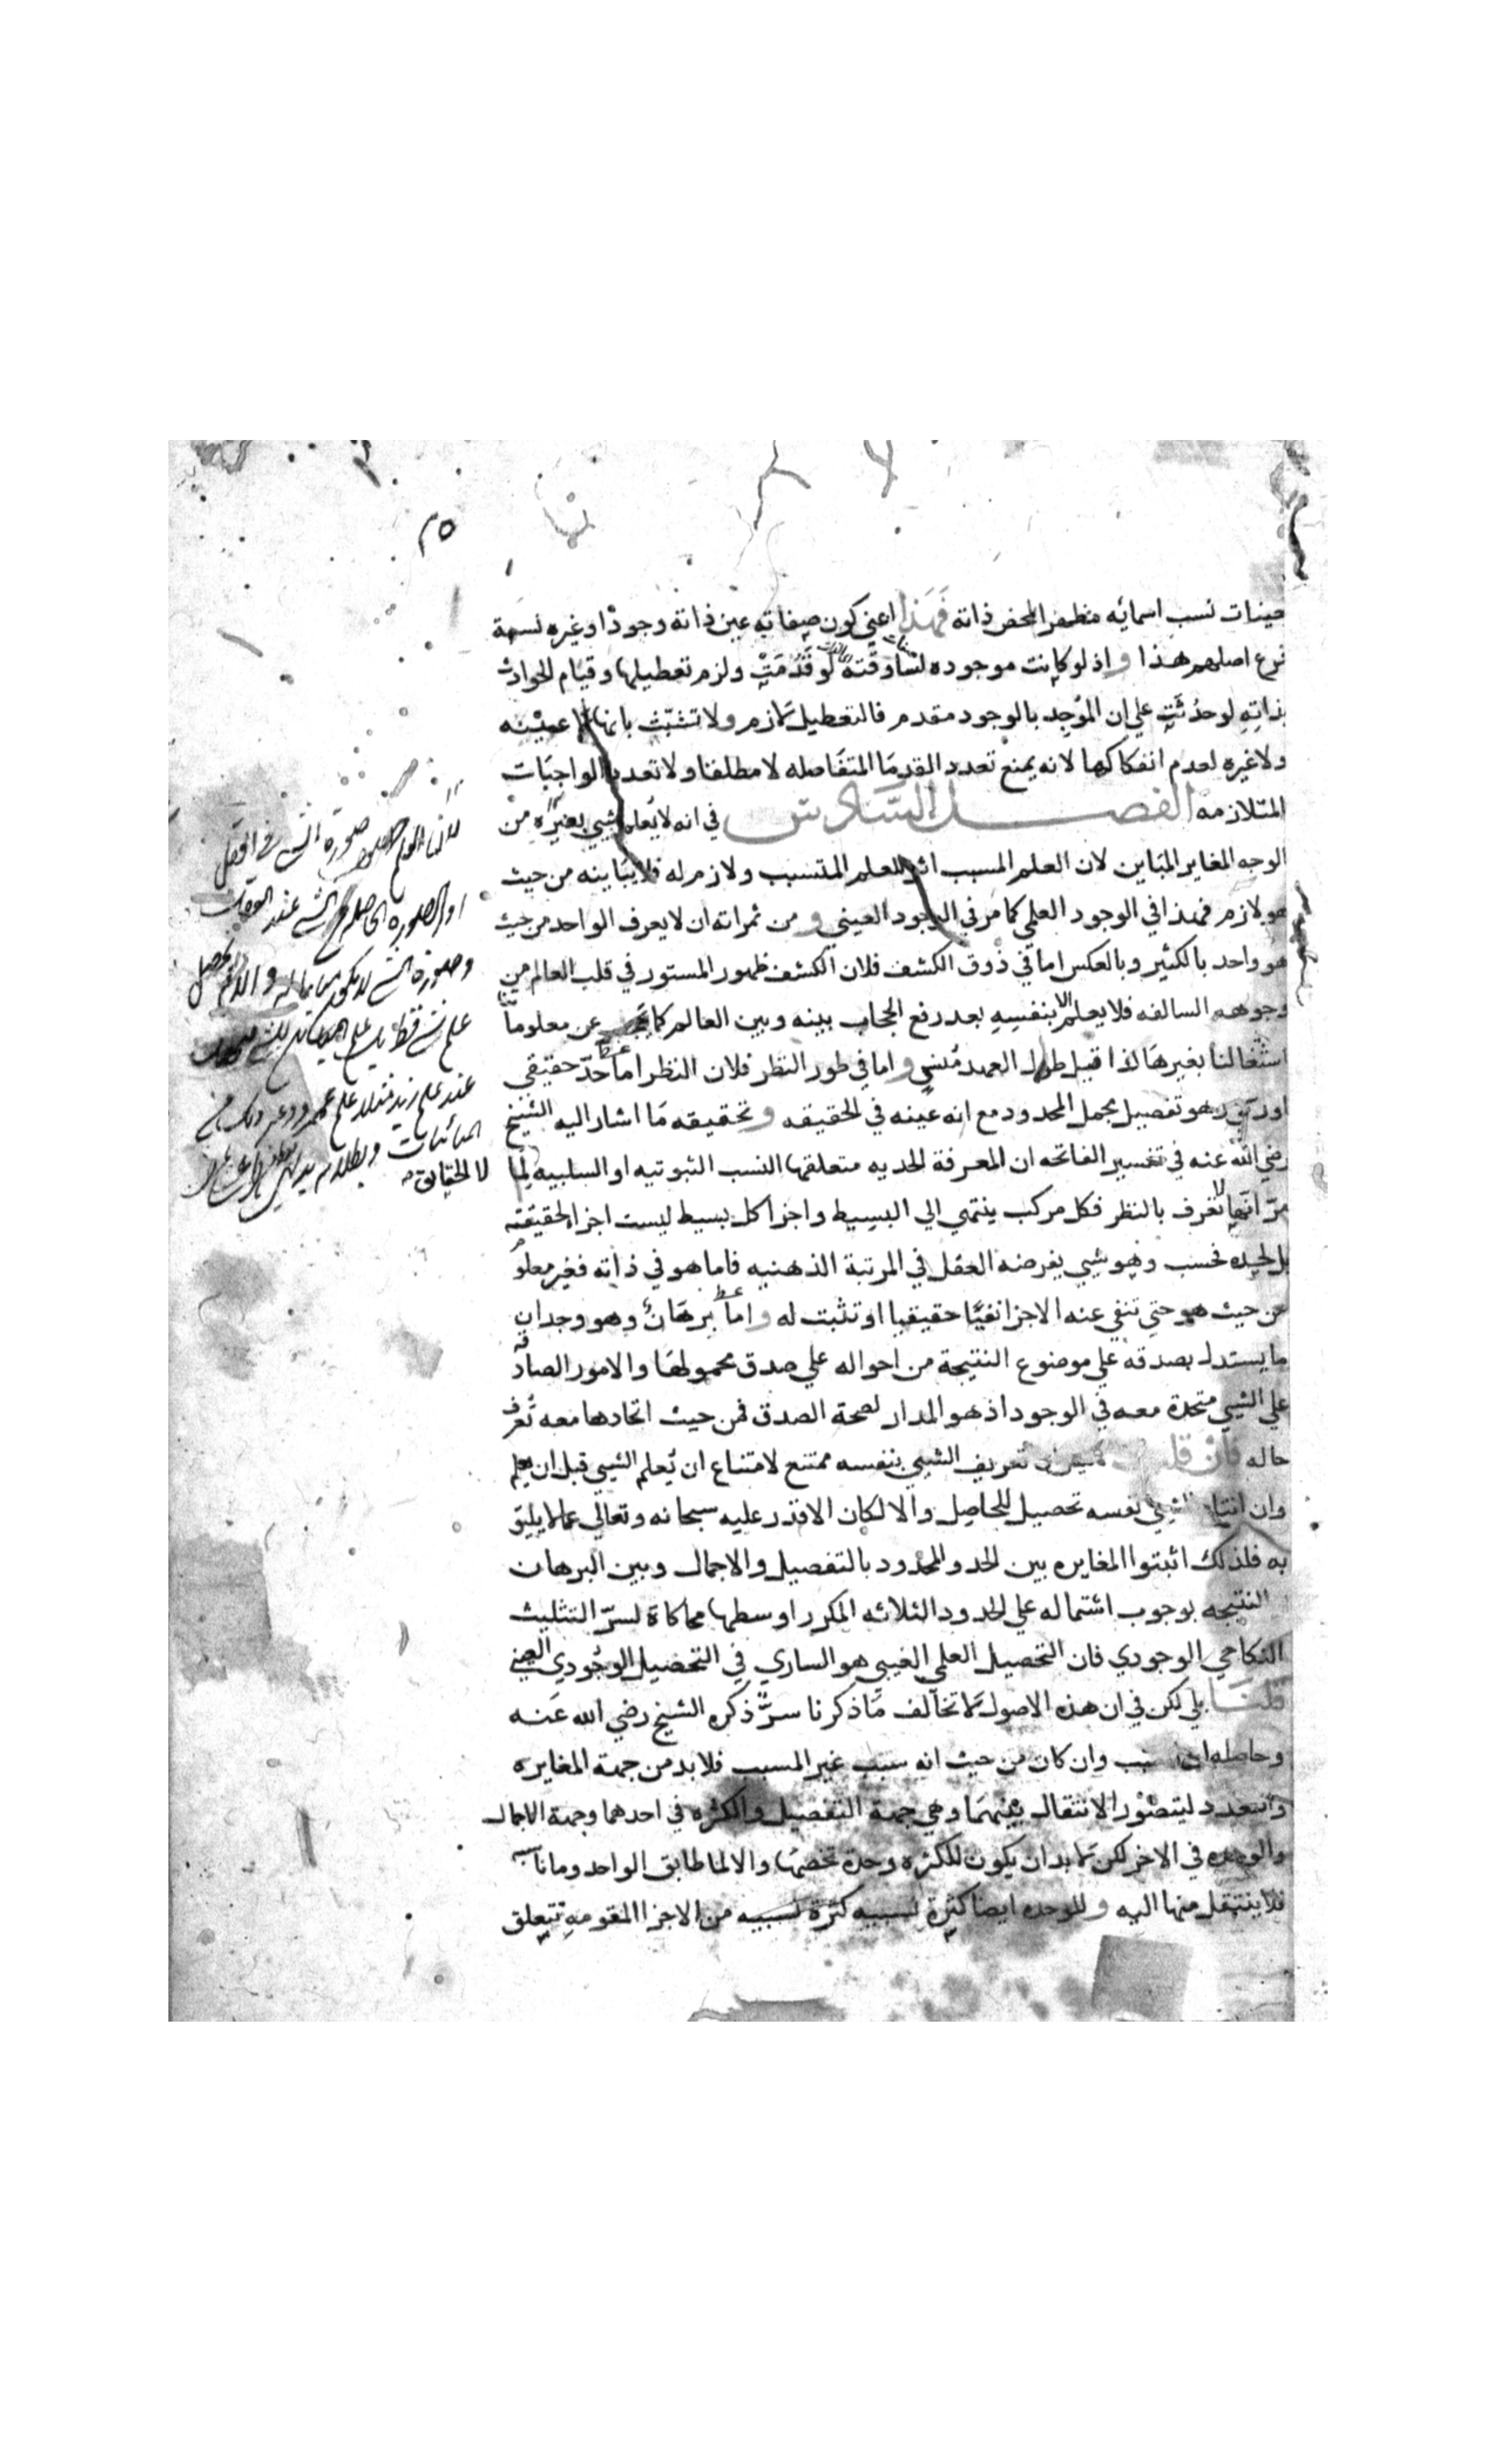 ٣٥
حينات نسب اسمائه منظفر المحض ذاته فهذا اعني كون صفاته عين ذاته وجودا وغيره نسبة
فرع اصلهم هذا واذ لو كانت موجوده لساوقته لو قدمت ولزم تعطيلها وقيام الحوادث
بذاته لو حدثت علي ان الموجد بالوجود مقدم فالتعطيل لازم ولا تشبث بانها لا عينه
ولا غيره لعدم انفكاكها لانه يمنع تعدد القدما المتفاصله لا مطلقا ولا تعدد الواجبات
المتلازمه الفصل السادس في انه لا يعلم شيي بغيره من
الوجه المغاير المباين لان العلم المسبب اثر للعلم المتسبب ولازم له فلا يباينه من حيث
هو لازم فهذا في الوجود العلمي كما مر في الوجود العيني و من ثمراته ان لا يعرف الواحد من حيث
هو واحد بالكثير وبالعكس اما في ذوق الكشف فلان الكشف ظهور المستور في قلب العالم من
وجوهه السالفه فلا يعلم الا بنفسه بعد رفع الحجاب بينه وبين العالم كما عن معلوماتنا
اشتغالنا بغيرها لذا قيل طول العهد منسي واما في طور النظر فلان النظر اما حد حقيقي
او رسمي وهو تفصيل مجمل المحدود مع انه عينه في الحقيقه وتحقيقه ما اشار اليه الشيخ
رضي الله عنه في تفسير الفاتحه ان المعرفة الحديه متعلقها النسب الثبوتيه او السلبيه لما
مر انها لا تعرف بالنظر فكل مركب ينتهي الي البسيط واجزا كل بسيط ليست اجزا لحقيقته
بل لحده فحسب وهو شيي يفرضه العقل في المرتبة الذهنيه فاما هو في ذاته فغير معلوم
من حيث هو حتي تنفي عنه الاجزا نفيا حقيقيا او تثبت له واما برهان وهو وجدان
ما يستدل بصدقه علي موضوع النتيجة من احواله علي صدق محمولها والامور الصادقة
علي الشيي متحدة معه في الوجود اذ هو المدار لصحة الصدق فمن حيث اتحادها معه تعرف
حاله فان قلت تعريف الشيي بنفسه ممتنع لامتناع ان يعلم الشيي قبل ان يعلم
وان انتاج الشيي نفسه تحصيل للحاصل والا لكان الاقدر عليه سبحانه وتعالي عما لا يليق
به فلذلك اثبتوا المغايره بين الحد والمحدود بالتفصيل والاجمال وبين البرهان
والنتيجه بوجوب اشتماله علي الحدود الثلاثه المكرر اوسطها محاكاة لسر التثليث
النكاحي الوجودي فان التحصيل العلمي الغيبي هو الساري في التحصيل الوجودي العيني
قلنا بلي لكن في ان هذه الاصول لا تخالف ما ذكرنا سر ذكره الشيخ رضي الله عنه
وحاصله ان السبب وان كان من حيث انه سبب غير المسبب فلا بد من جهة المغايره
والتعدد ليتصور الانتقال بينهما وهي جهة التفصيل والكثره في احدهما وجهة الاجمال
والوحده في الاخر لكن لا بد ان يكون للكثره وحدة تخصها والا لما طابق الواحد وما ناسبه
فلا ينتقل منها اليه وللوحده ايضا كثرة نسبيه كثرة نسبيه من الاجزا المقومه تتعلق
صورة الشي في العقل
او الصورة الحاصلة من الشي عند العقل
وصورة الشي لا يكون
عند علم زيد مثلا علم عمرو
لا الحقايق